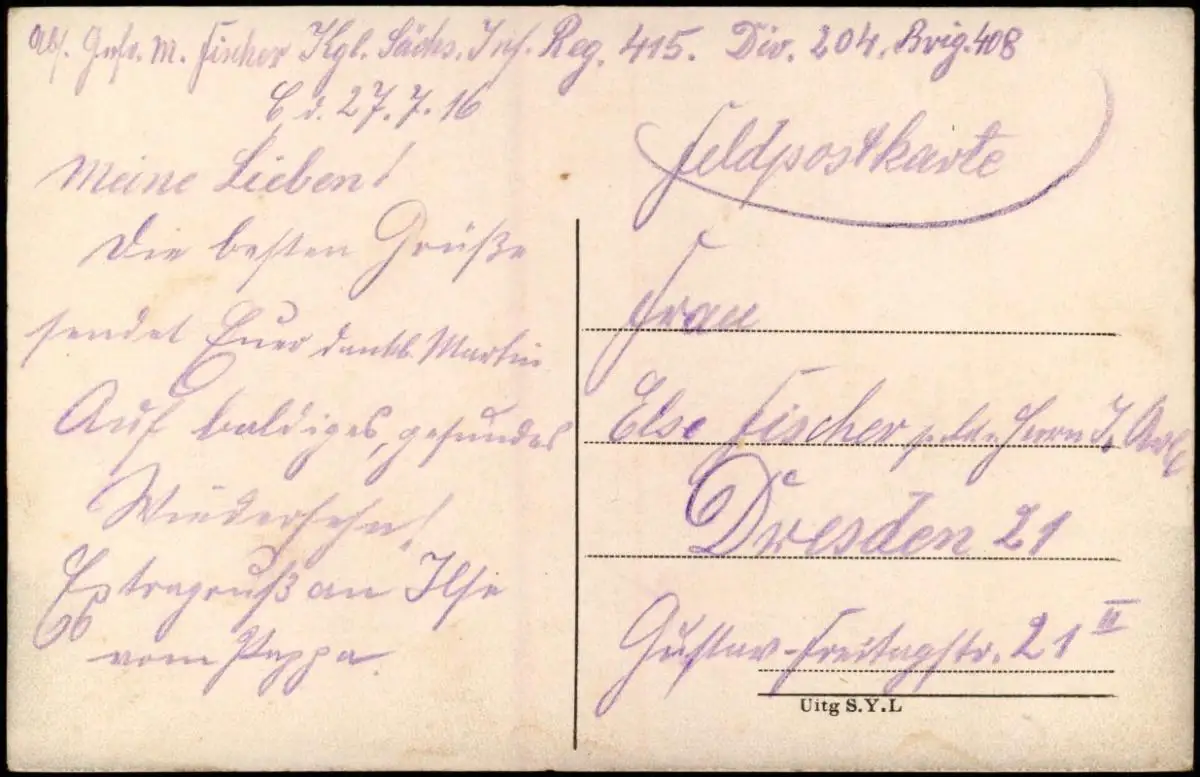 Abs. Gefr. M. Fischer Kgl. Sächs. Inf. Reg. 415. Div. 204. Brig. 408
d. 27.7.16
Meine Lieben!
Die besten Grüße
sendet Euer dankb. Martin
Auf baldiges, gesundes
Wiedersehn!
Extragruß an Ilse
vom Pappa.
Feldpostkarte
Frau
Else Fischer Herrn
Dresden 21
Gustav-Freitagstr. 21 III
Uitg S.Y.L